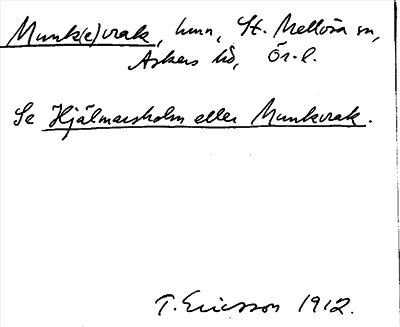 Munk(e)vrak, hmn, St. Mellösa sn,
Askers hd, Ör. l.
Se Hjälmarsholm eller Munkvrak.
T. Ericsson 1912.